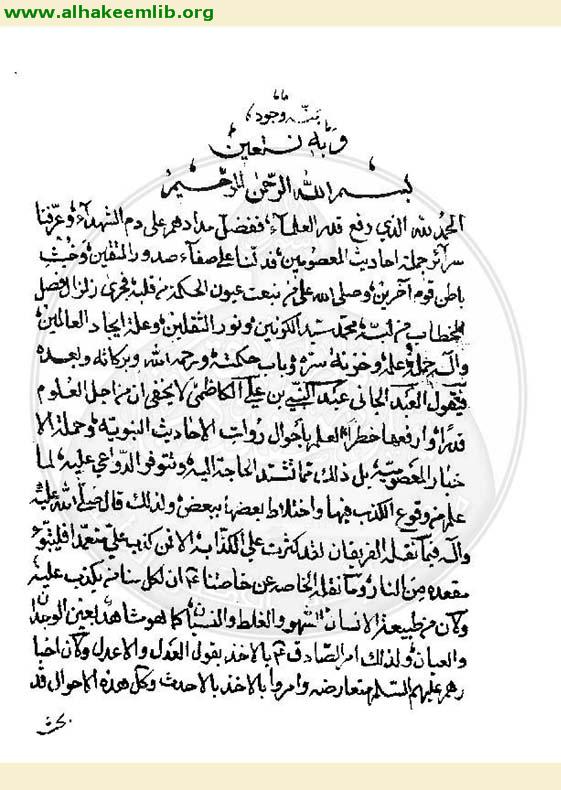 www.alhakeemlib.org
وبه نستعين
بسم الله الرحمن الرحيم
الحمد لله الذي رفع قدر العلماء ففضل مدادهم على دم الشهداء وعرفنا
سرائر جملة احاديث المعصومين فدلنا على صفاء صدور المتقين وخبث
باطن قوم آخرين وصلى الله على من نبعت عيون الحكمة من قلبه فجرى زلزال فصل
الخطاب من لبه محمد سيد الكونين ونور الثقلين وعلة ايجاد العالمين
واله حملة علمه وخزنة سره وباب حكمته ورحمة الله وبركاته وبعده
فيقول العبد الجاني عبد النبي بن علي الكاظمي لا يخفى ان من اجل العلوم
قدرا وارفعها خطرا العلم باحوال روات الاحاديث النبوية وحملة الا
خبار المعصومية بل ذلك مما تشتد الحاجة اليه وتتوفر الدواعي عليه لما
علم من وقوع الكذب فيها واختلاط بعضها ببعض ولذلك قال صلى الله عليه
واله فيما نقله الفريقان لقد كثرت علي الكذابة الا فمن كذب علي متعمدا فليتبوء
مقعده من النار وما نقله الخاصه عن خاصتنا ان لكل منا من يكذب عليه
وكان من طبيعة الانسان السهو والغلط والنسيان كما هو مشاهد بعين الوجدان
والعيان ولذلك امر الصادق ع بالاخذ بقول العدل والاعدل وكان اخبا
رهم عليهم السلام متعارضه وامروا بالاخذ بالاحدث وكل هذه الاحوال قد